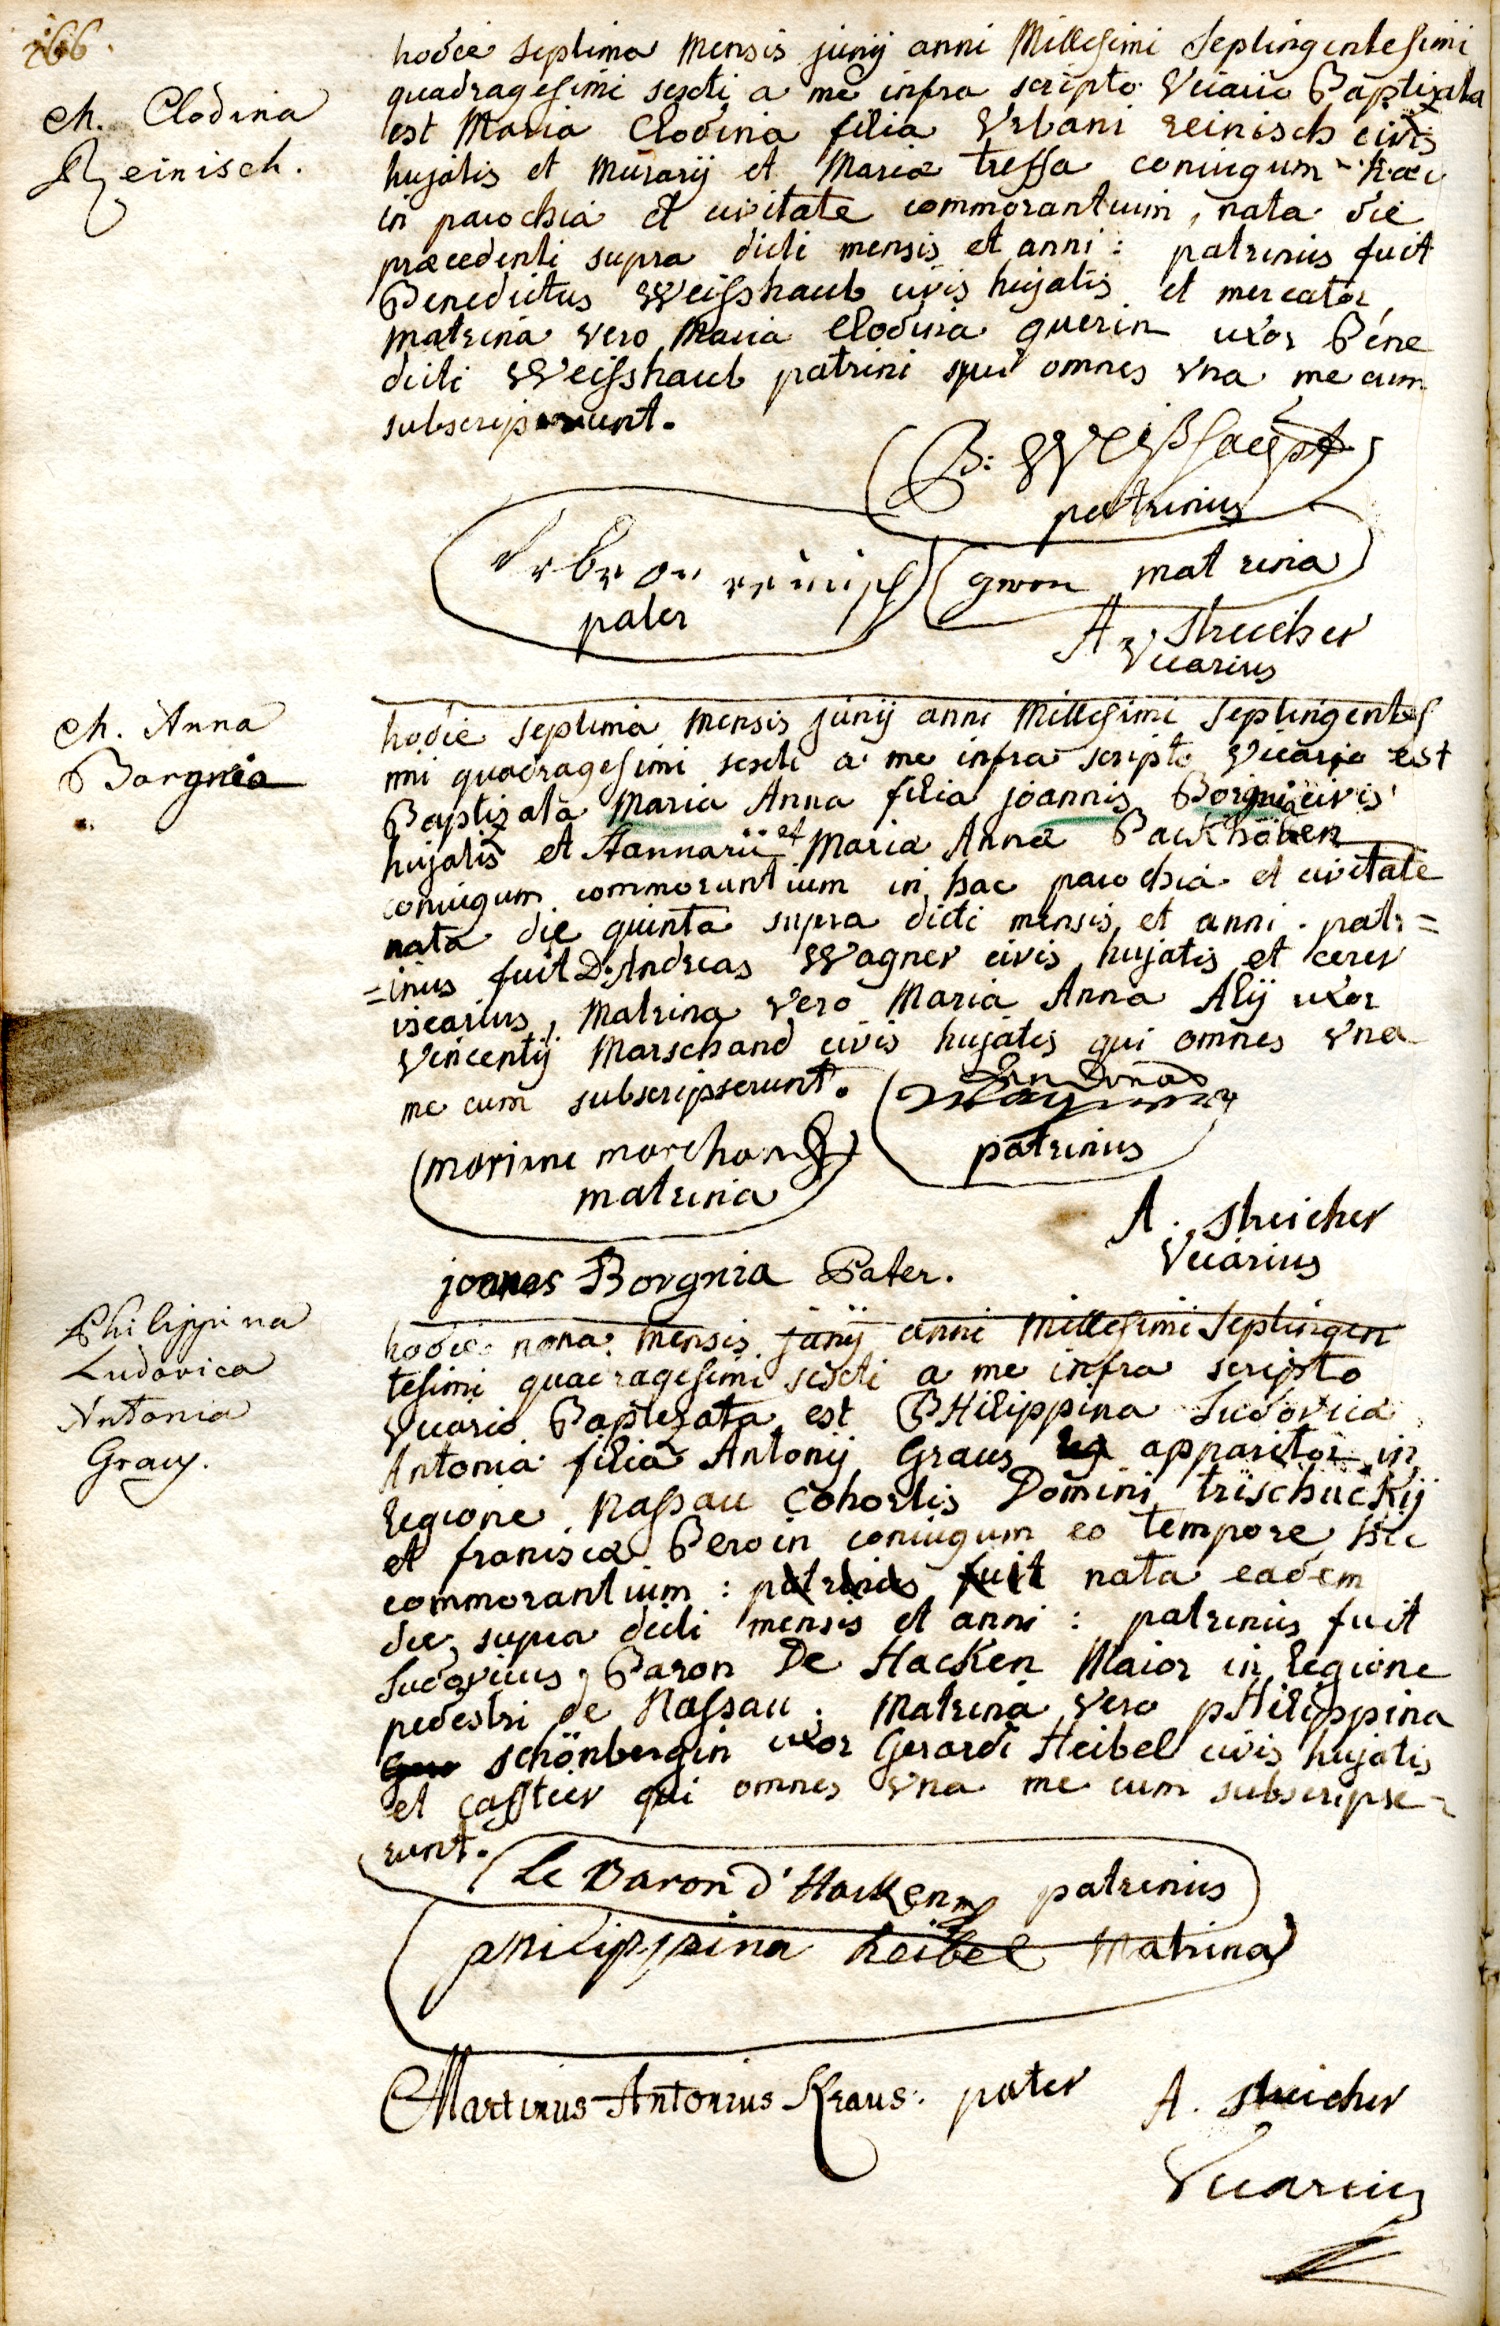 166.
M. Clodina
Reinisch.
hodie septima mensis junij anni Millesimi Septingentesimi
quadragesimi sexti a me infra scripto Vicario Baptizata
est Maria Clodina filia Urbani reinisch civis
hujatis et murarij et Mariæ tressa coniugum hac
in parochia et civitate commorantium, nata die
præcedenti supra dicti mensis et anni: patrinus fuit
Benedictus Weisshaub civis hujatis et mercator,
matrina vero Maria Clodina querin uxor Bene
dicti Weisshaub patrini qui omnes vna me cum
subscripserunt.
B: Weißhaupt
patrinus
Urban reinisch
pater
matrina
A. Streicher
Vicarius
M. Anna
Borgnia
hodie septima mensis junij anni Millesimi septingentes
imi quadragesimi sexti a me infra scripto Vicario est
Baptizata Maria Anna filia joannis Borgnia civis
hujatis et stannarii et Mariæ Annæ Backhoven
coniugum commorantium in hac parochia et civitate
nata die quinta supra dicti mensis et anni. patr=
=inus fuit D. Andreas Wagner civis hujatis et cerev
isearius, Matrina vero Maria Anna Alij uxor
Vincentij Marschand civis hujatis qui omnes vna
me cum subscripserunt.
patrinus
mariane marchand
matrina
A. Streicher
Vicarius
joanes Borgnia Pater.
Philippina
Ludovica
Antonia
Graus.
hodie nona mensis junij anni Millesimi Septingen
tesimi quadragesimi sexti a me infra scripto
Vicario Baptizata est PHilippina Ludovica
Antonia filia Antonij Graus apparitor in
regione Nassau cohortis Domini trischuckij
et franisca Peroin coniugum eo tempore hic
commorantium: patrinus fuit nata eadem
die supra dicti mensis et anni: patrinus fuit
Ludovicus, Baron De Hacken Maior in Regione
pedestri de Nassau. Matrina vero pHilippina
schönbergin uxor Gerardi Heibel civis hujatis
et caffetier qui omnes vna me cum subscripse=
runt.
Le Baron d'Hacken patrinus
philippina heibel Matrina
Martinus Antonius Kraus: pater
A. Streicher
Vicarius